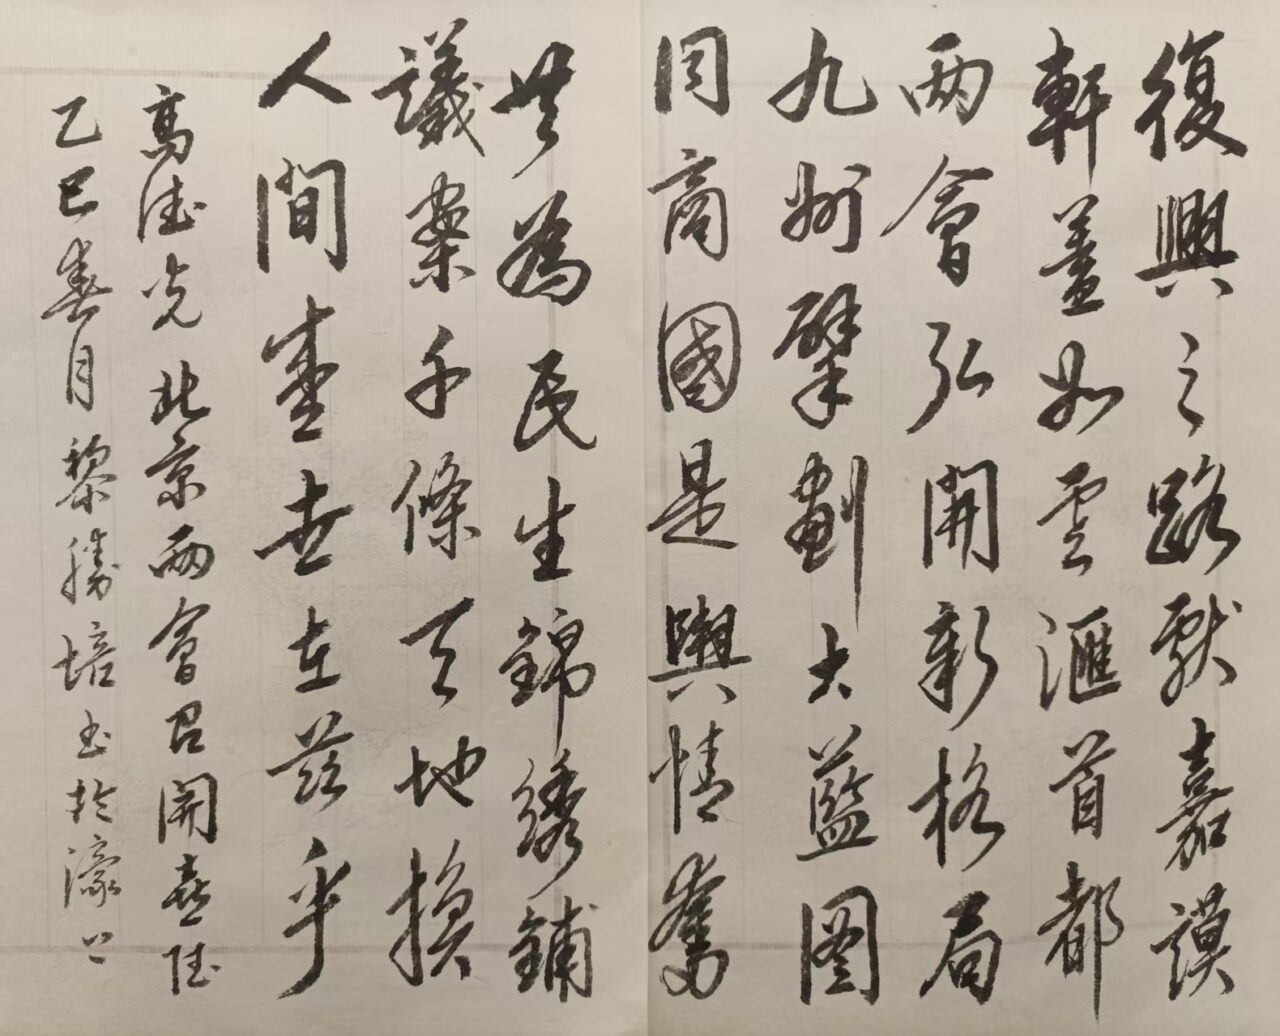 復興之路獻嘉謨
軒蓋如雲滙首都
兩會弘開新格局
九州擘劃大藍圖
同商國是輿情奮
共為民生錦綉鋪
議案千條天地換
人間盛世在茲乎
高德光北京兩會召開喜
乙巳春月黎勝培书於濠上